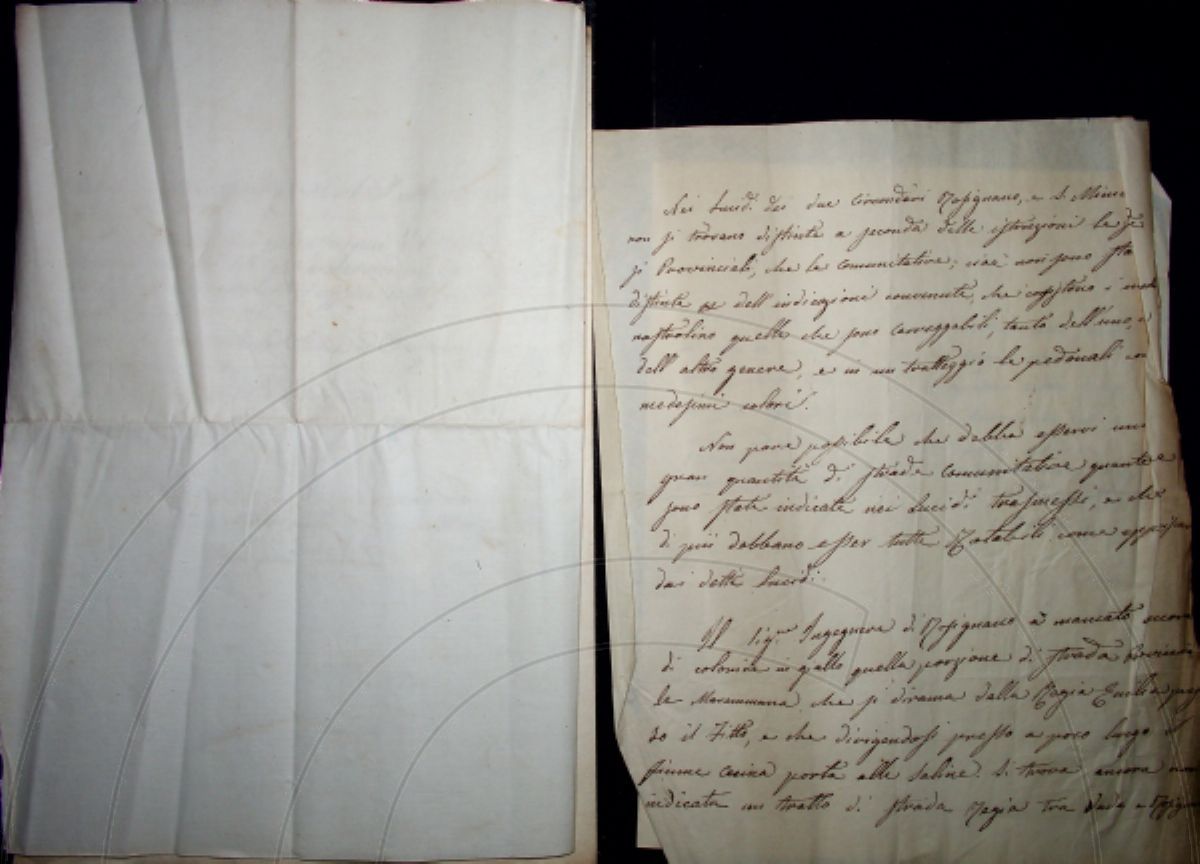 Nei Lucidi dei due Circondarj Rosignano, e S. Minia
non si trovano distinte a seconda delle istruzioni le
si Provinciali, che le Comunitative; cioè non sono sta
distinte dell'indicazioni convenute, che
nastrolino quelle che sono Carreggiabili, tanto dell'uno, e
dell'altro genere, e in un tratteggio le pedonali
medesimi colori.
Non pare possibile che debba esservi una
gran quantità di strade comunitative quante
sono state indicate nei Lucidi trasmessi, e che
di più debbano esser tutte Rotabili come
dai detti Lucidi.
Il Sig.re Ingegnere di Rosignano à mancato
di colorire in giallo quella porzione di strada Provincia
le Maremmana che si dirama dalla Regia Emilia
do il Fitto, e che dirigendosi presso a poco lungo il
fiume Cecina porta alle Saline. Si trova ancora non
indicata un tratto di strada Regia tra Vada e